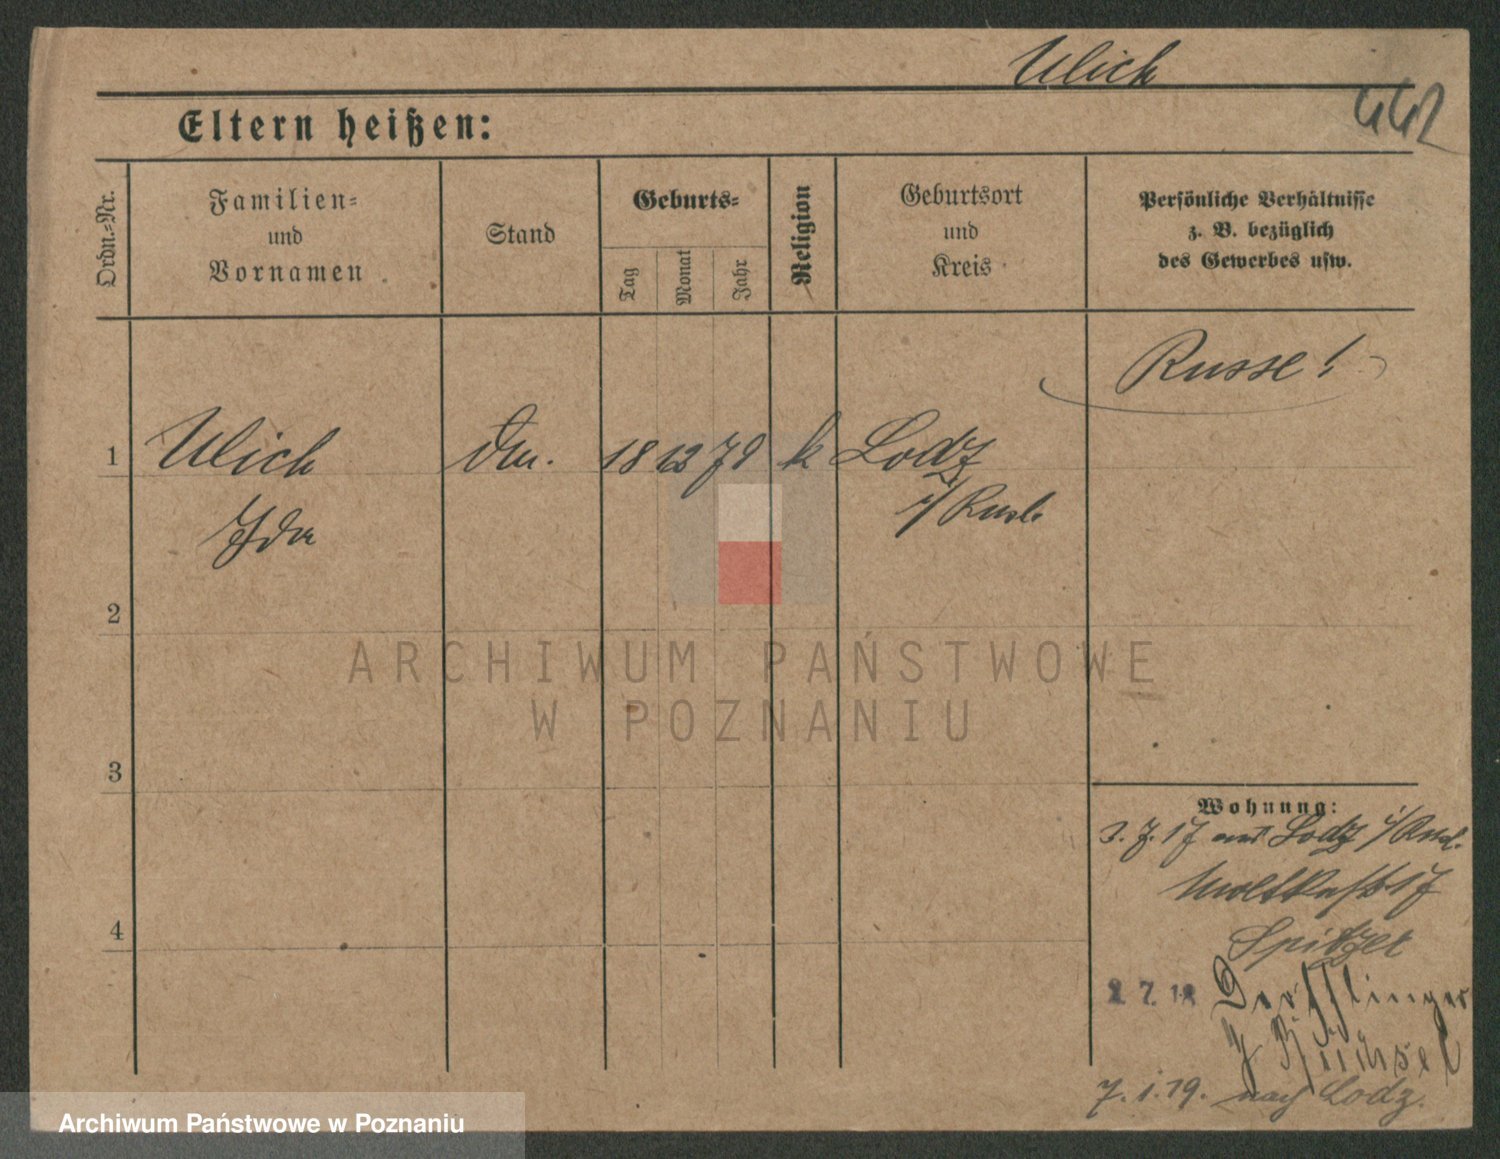 Ulich
442
Eltern heißen:
Ordn.-Nr.
Familien-
und
Vornamen
Stand
Geburts-
Tag
Monat
Jahr
Religion
Geburtsort
und
Kreis
Persönliche Verhältnisse
z. B. bezüglich
des Gewerbes usw.
Russe!
1 Ulich 18 12 k Lodz
Ida i/Russl.
2
3
4
Wohnung:
3. 7. 17 aus Lodz i/Russl.
Moltkestr 17
Spitzer
2. 7. 18 Derfflinger
7
7. 1. 19. nach Lodz.
ARCHIWUM PAŃSTWOWE
W POZNANIU
Archiwum Państwowe w Poznaniu